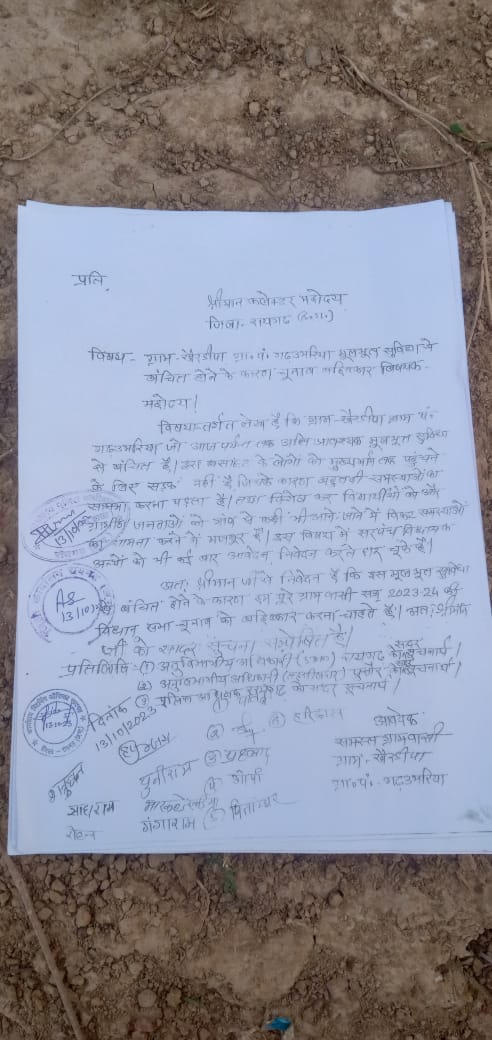 प्रति,
श्रीमान कलेक्टर महोदय
जिला- रायगढ़ (छ.ग.)
विषय - ग्राम-खैरडीपा ग्रा.पं. गढ़उमरिया मूलभूत सुविधा से
वंचित होने के कारण चुनाव बहिष्कार विषयक-
महोदय!
विषयान्तर्गत लेख है कि ग्राम-खैरडीपा ग्राम पं.
गढ़उमरिया जो आज पर्यन्त तक अति आवश्यक मूलभूत सुविधा
से वंचित है। इस बसाहट के लोगों को मुख्यमार्ग तक पहुंचने
के लिए सड़क नहीं है जिसके कारण समस्याओं का
सामना करना पड़ता है। तथा विशेष कर विद्यार्थीयों को और
ग्रामीण जनताओं को गांव से कहीं भी आने जाने में विकट समस्याओं
का सामना करने में मजबूर हैं। इस विषय में सरपंच विधायक
अन्यों को भी कई बार आवेदन, निवेदन करते हार चूके हैं।
अतः श्रीमान जी से निवेदन है कि इस मूलभूत सुविधा
से वंचित होने के कारण हम पूरे ग्रामवासी सन् 2023-24 की
विधान सभा चुनाव को बहिष्कार करना चाहते हैं। अतः श्रीमान
जी को सादर सूचना सम्प्रेषित है।
प्रतिलिपि:- (1) अनुविभागीय अधिकारी रायगढ़ को सादर सूचनार्थ।
(2) अनुविभागीय अधिकारी को सादर सूचनार्थ।
(3) पुलिस अधीक्षक रायगढ़ को सादर सूचनार्थ।
दिनांक
13/10/2023
आवेदक
समस्त ग्रामवासी
ग्राम- खैरडीपा
ग्रा.पं.- गढ़उमरिया
मुनीराम
गंगाराम
(5) पिताम्बर
13/10/2023